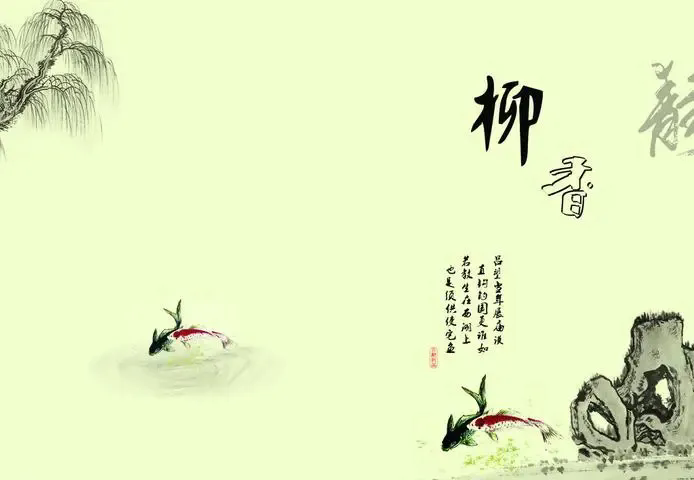 柳
香
吕望当年展庙谟
直钩钓国更谁如
若教生在西湖上
也是须供使宅鱼